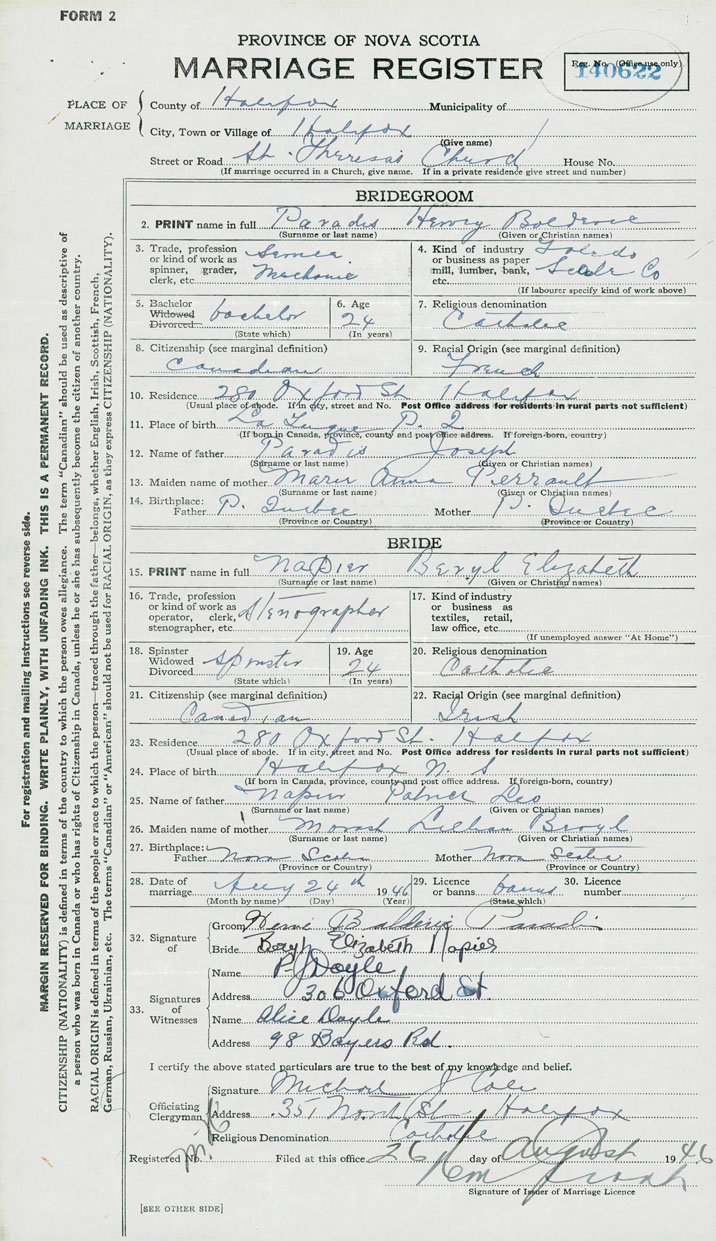 FORM 2
PROVINCE OF NOVA SCOTIA
MARRIAGE REGISTER
Reg. No. (Office use only)
140622
PLACE OF MARRIAGE
County of Halifax Municipality of
City, Town or Village of Halifax
(Give name)
Street or Road St. Theresa's Church House No.
(If marriage occurred in a Church, give name. If in a private residence give street and number)
BRIDEGROOM
2. PRINT name in full Paradis Henry
(Surname or last name) (Given or Christian names)
3. Trade, profession or kind of work as spinner, grader, clerk, etc. Mechanic
4. Kind of industry or business as paper mill, lumber, bank, etc. Toledo Scale Co
(If labourer specify kind of work above)
5. Bachelor Widowed Divorced bachelor
(State which)
6. Age 24
(In years)
7. Religious denomination
Catholic
8. Citizenship (see marginal definition)
Canadian
9. Racial Origin (see marginal definition)
French
10. Residence 280 Oxford St Halifax
(Usual place of abode. If in city, street and No. Post Office address for residents in rural parts not sufficient)
11. Place of birth La Tuque P. Q
(If born in Canada, province, county and post office address. If foreign-born, country)
12. Name of father Paradis Joseph
(Surname or last name) (Given or Christian names)
13. Maiden name of mother Marie Anna Perrault
(Surname or last name) (Given or Christian names)
14. Birthplace:
Father P. Quebec Mother P. Quebec
(Province or Country) (Province or Country)
BRIDE
15. PRINT name in full Napier Beryl Elizabeth
(Surname or last name) (Given or Christian names)
16. Trade, profession or kind of work as operator, clerk, stenographer, etc. Stenographer
17. Kind of industry or business as textiles, retail, law office, etc.
(If unemployed answer "At Home")
18. Spinster Widowed Divorced Spinster
(State which)
19. Age 24
(In years)
20. Religious denomination
Catholic
21. Citizenship (see marginal definition)
Canadian
22. Racial Origin (see marginal definition)
Irish
23. Residence 280 Oxford St. Halifax
(Usual place of abode. If in city, street and No. Post Office address for residents in rural parts not sufficient)
24. Place of birth Halifax N S
(If born in Canada, province, county and post office address. If foreign-born, country)
25. Name of father Napier Patrick Leo
(Surname or last name) (Given or Christian names)
26. Maiden name of mother Lillian Beryl
(Surname or last name) (Given or Christian names)
27. Birthplace:
Father Nova Scotia Mother Nova Scotia
(Province or Country) (Province or Country)
28. Date of marriage Aug 24th 1946
(Month by name) (Day) (Year)
29. Licence or banns banns
(State which)
30. Licence number
32. Signature of
Groom Paradis
Bride Beryl Elizabeth Napier
33. Signatures of Witnesses
Name P. J Doyle
Address 306 Oxford St.
Name Alice Doyle
Address 98 Bayers Rd.
I certify the above stated particulars are true to the best of my knowledge and belief.
Officiating Clergyman
Signature Michael J Cole
Address 351 North St Halifax
Religious Denomination Catholic
Registered No. Filed at this office 26 day of August 1946
Signature of Issuer of Marriage Licence
[SEE OTHER SIDE]
For registration and mailing instructions see reverse side.
MARGIN RESERVED FOR BINDING. WRITE PLAINLY, WITH UNFADING INK. THIS IS A PERMANENT RECORD.
CITIZENSHIP (NATIONALITY) is defined in terms of the country to which the person owes allegiance. The term "Canadian" should be used as descriptive of
a person who was born in Canada or who has rights of Citizenship in Canada, unless he or she has subsequently become the citizen of another country.
RACIAL ORIGIN is defined in terms of the people or race to which the person—traced through the father—belongs, whether English, Irish, Scottish, French,
German, Russian, Ukrainian, etc. The terms "Canadian" or "American" should not be used for RACIAL ORIGIN, as they express CITIZENSHIP (NATIONALITY).